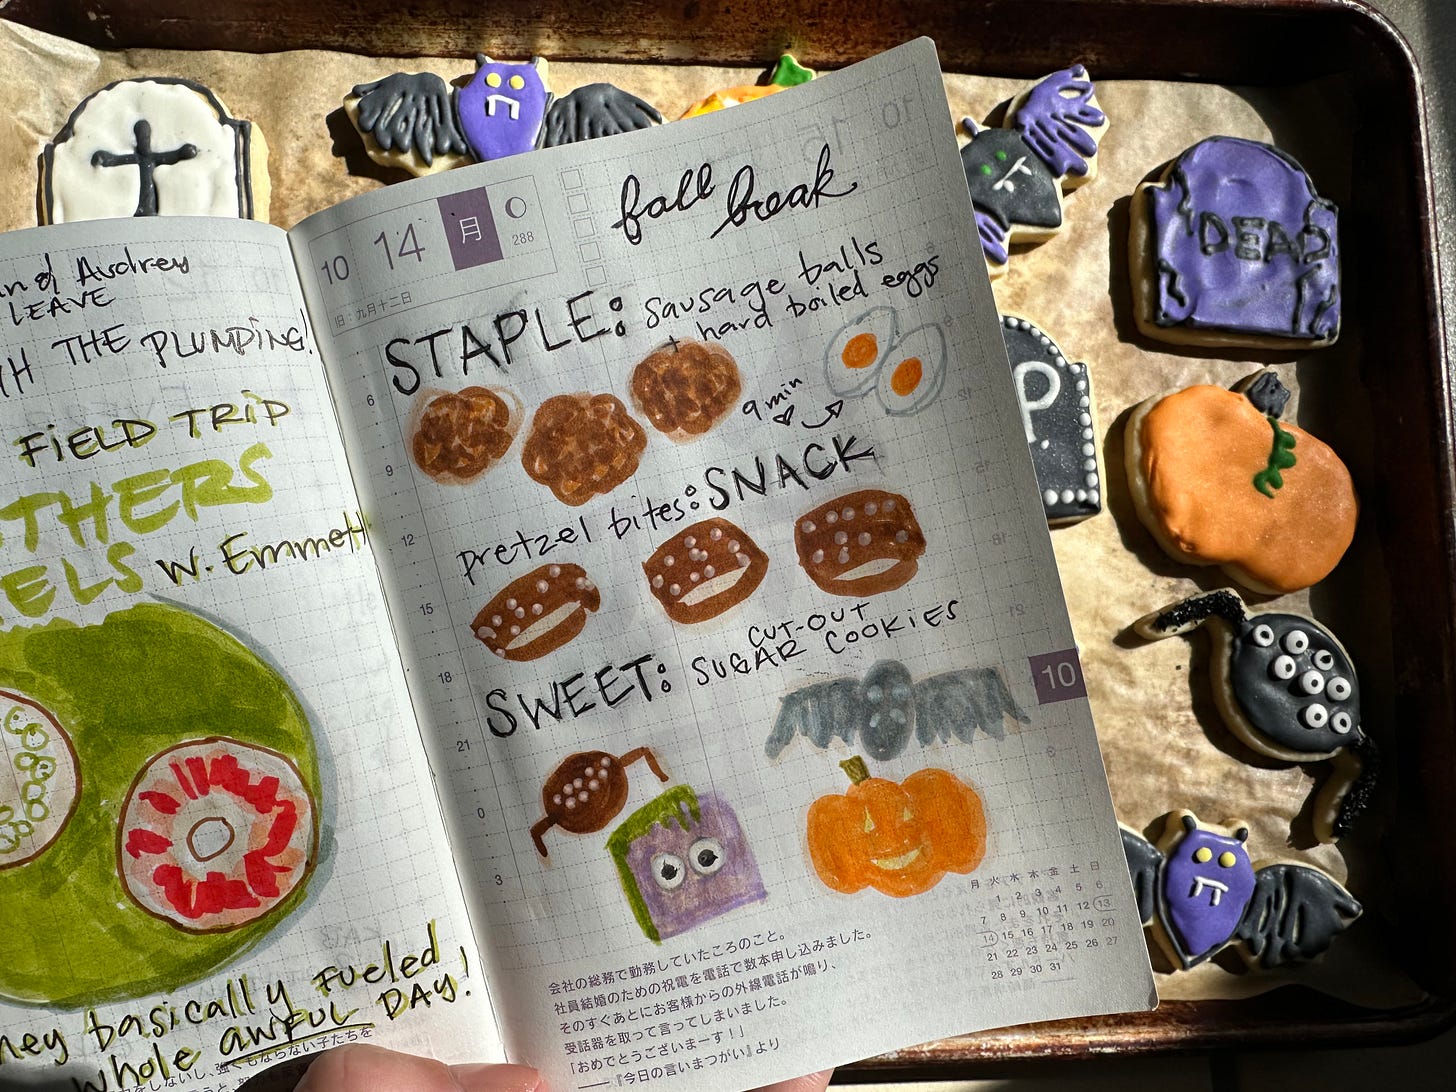 and Audrey
LEAVE
THE PLUMPING!
FiELD TRiP
W. Emmett
basically fueled
whole awful DAY!
らない子たちを
10 14 月
288
旧：九月十二日
fall break
STAPLE: sausage balls
+ hard boiled eggs
9 min
pretzel bites: SNACK
SWEET: CUT-OUT
SUGAR COOKiES
6
9
12
15
18
21
0
3
10
月 火 水 木 金 土 日
1 2 3 4 5 6
7 8 9 10 11 12 13
14 15 16 17 18 19 20
21 22 23 24 25 26 27
28 29 30 31
会社の総務で勤務していたころのこと。
社員結婚のための祝電を電話で数本申し込みました。
そのすぐあとにお客様からの外線電話が鳴り、
受話器を取って言ってしまいました。
「おめでとうございまーす！」
――『今日の言いまつがい』より
DEAD
P.